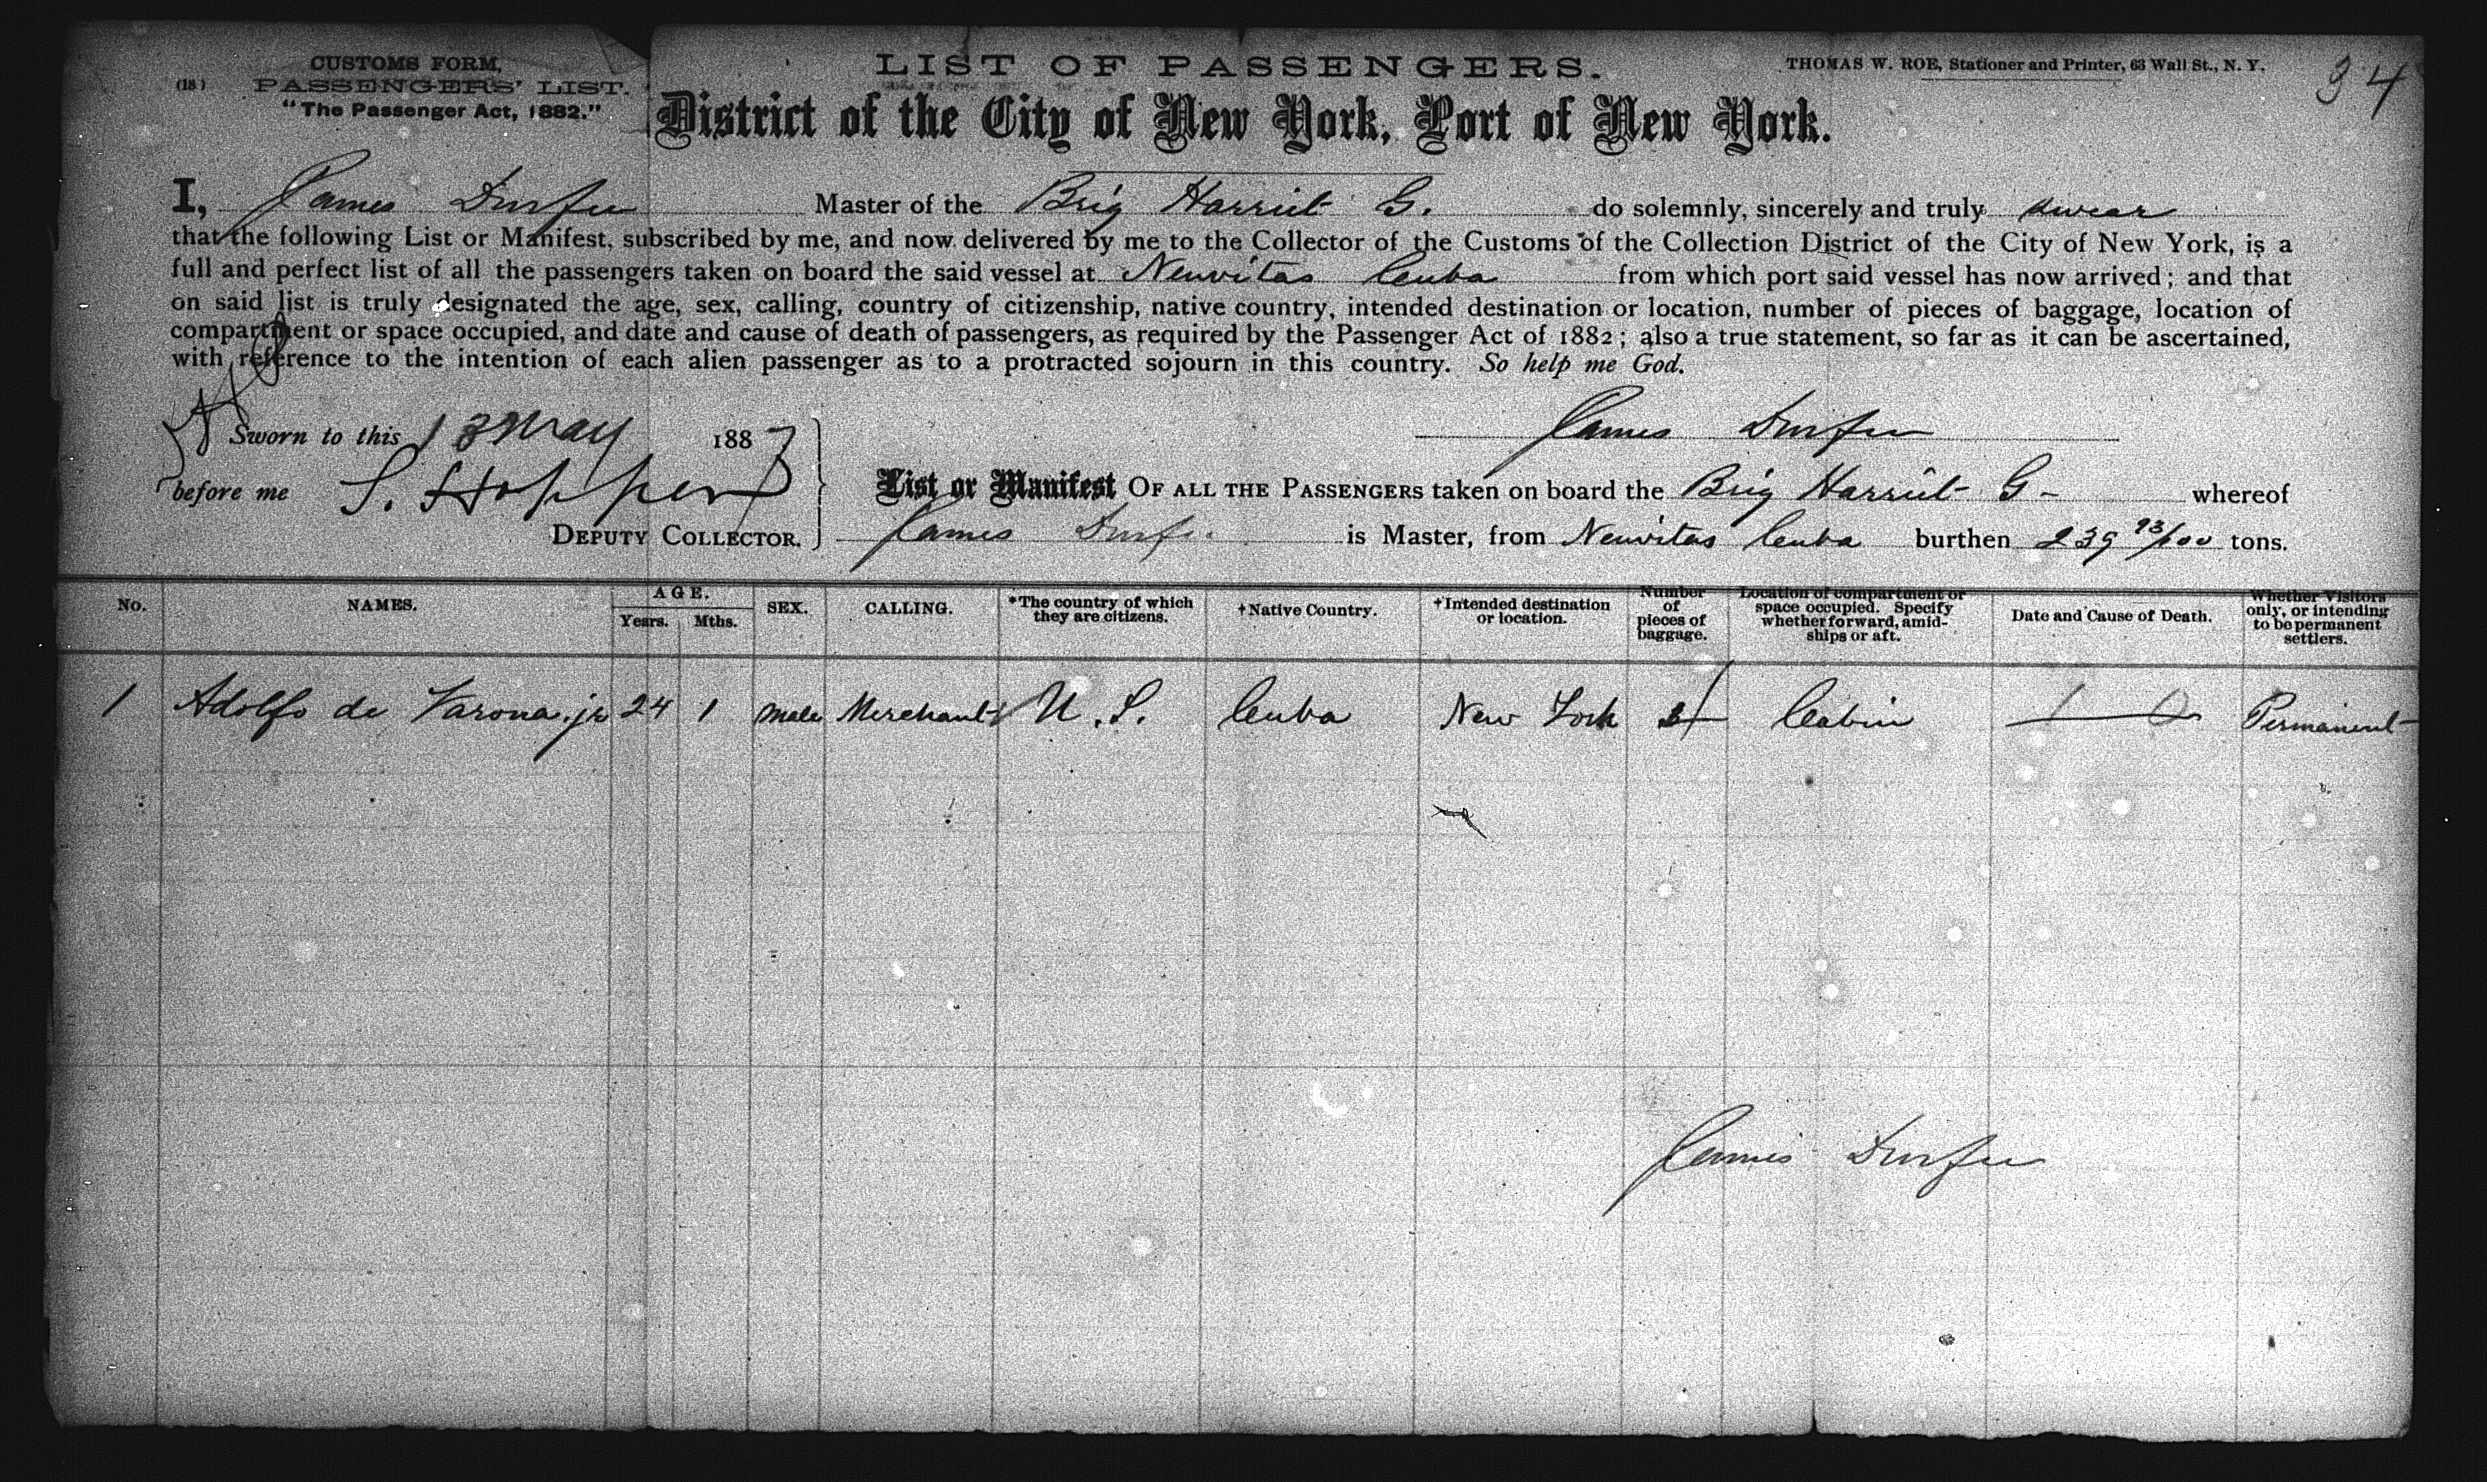 CUSTOMS FORM,
(18) PASSENGERS' LIST.
"The Passenger Act, 1882."
LIST OF PASSENGERS.
THOMAS W. ROE, Stationer and Printer, 63 Wall St., N. Y.
34
District of the City of New York, Port of New York.
I, James Durfee Master of the Brig Harriet G. do solemnly, sincerely and truly swear
that the following List or Manifest, subscribed by me, and now delivered by me to the Collector of the Customs of the Collection District of the City of New York, is a
full and perfect list of all the passengers taken on board the said vessel at Neuvitas Cuba from which port said vessel has now arrived; and that
on said list is truly designated the age, sex, calling, country of citizenship, native country, intended destination or location, number of pieces of baggage, location of
compartment or space occupied, and date and cause of death of passengers, as required by the Passenger Act of 1882; also a true statement, so far as it can be ascertained,
with reference to the intention of each alien passenger as to a protracted sojourn in this country. So help me God.
Sworn to this 13 May 1887
James Durfee
before me S. Hopper
DEPUTY COLLECTOR.
List or Manifest OF ALL THE PASSENGERS taken on board the Brig Harriet G - whereof
James Durfee is Master, from Neuvitas Cuba burthen 239 93/100 tons.
No. NAMES. AGE. Years. Mths. SEX. CALLING. *The country of which they are citizens. †Native Country. †Intended destination or location. Number of pieces of baggage. Location of compartment or space occupied. Specify whether forward, amidships or aft. Date and Cause of Death. Whether Visitors only, or intending to be permanent settlers.
1 Adolfo de Varona jr 24 1 male Merchant U.S. Cuba New York Cabin Permanent
James Durfee